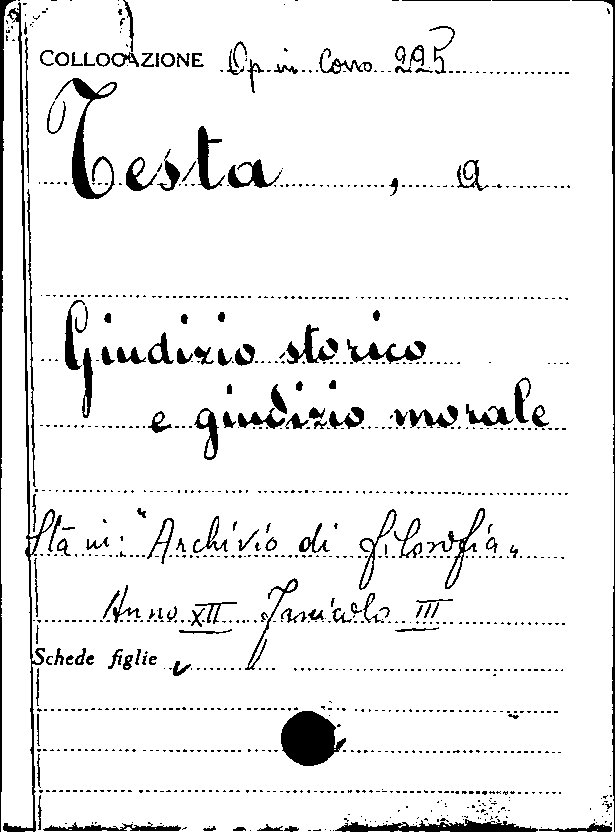 COLLOCAZIONE Op in Corso 225
Testa , A.
Giudizio storico
e giudizio morale
Sta in: "Archivio di filosofia"
Anno XII Fascicolo III
Schede figlie